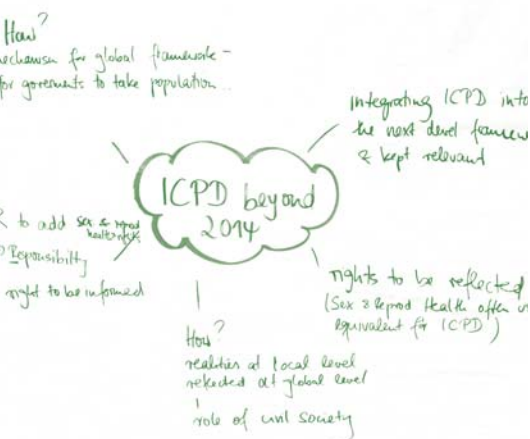 How?
mechanism for global framework -
for governments to take population...
integrating ICPD into
the next devel framework
& kept relevant
ICPD beyond
2014
to add sex & reprod
health risk
Responsibility
right to be informed
rights to be reflected
(Sex & Reprod Health often
equivalent for ICPD)
How?
realities at local level
reflected at global level
role of civil society